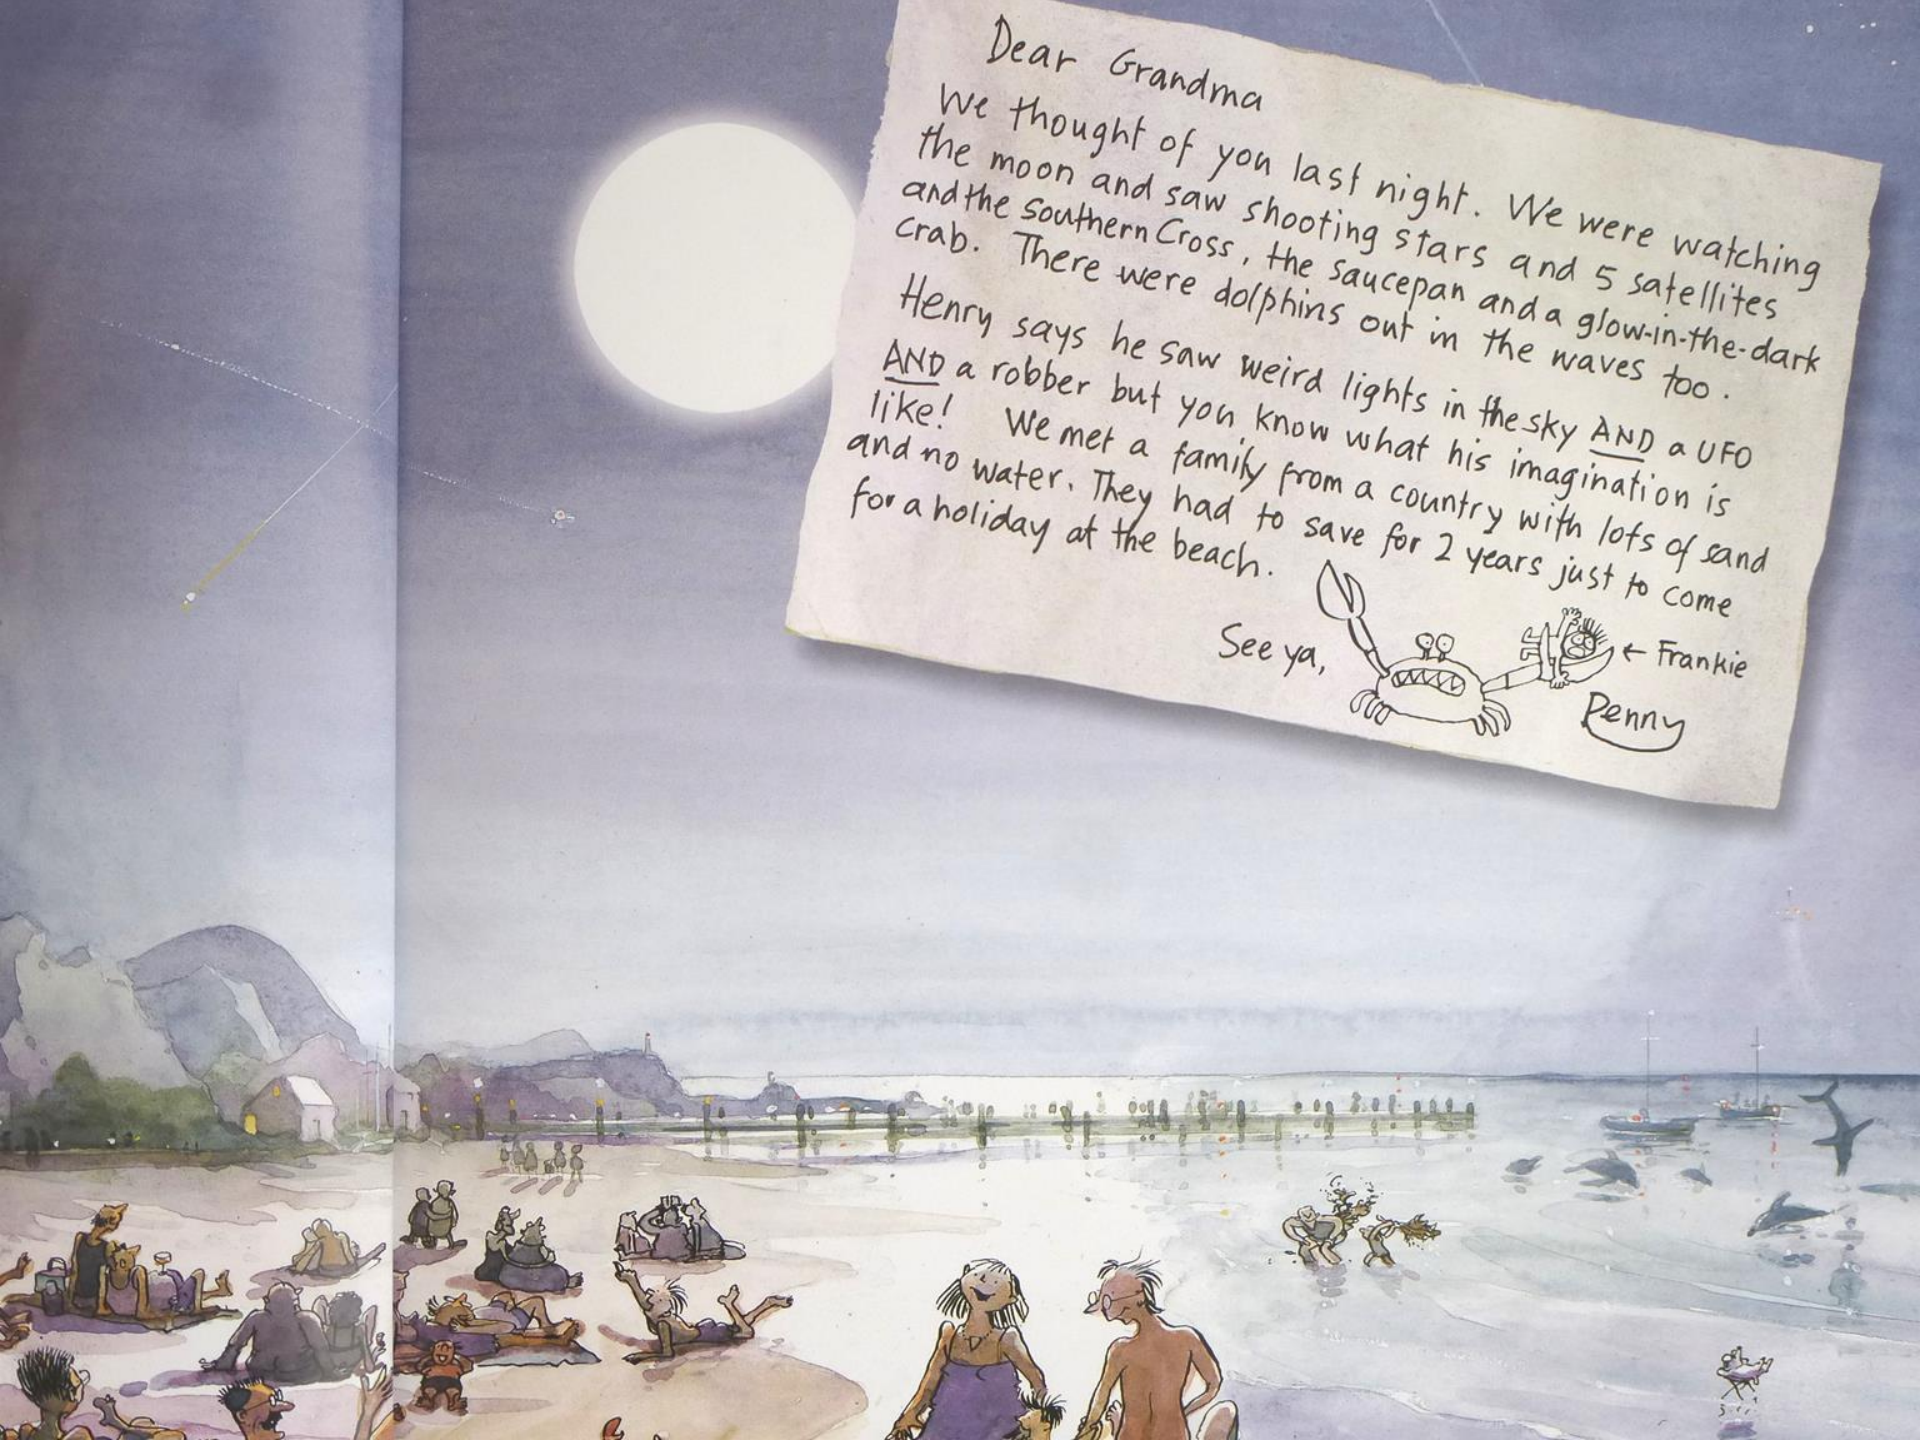 Dear Grandma
We thought of you last night. We were watching
the moon and saw shooting stars and 5 satellites
and the Southern Cross, the saucepan and a glow-in-the-dark
crab. There were dolphins out in the waves too.
Henry says he saw weird lights in the sky AND a UFO
AND a robber but you know what his imagination is
like! We met a family from a country with lots of sand
and no water. They had to save for 2 years just to come
for a holiday at the beach.
See ya,
← Frankie
Penny